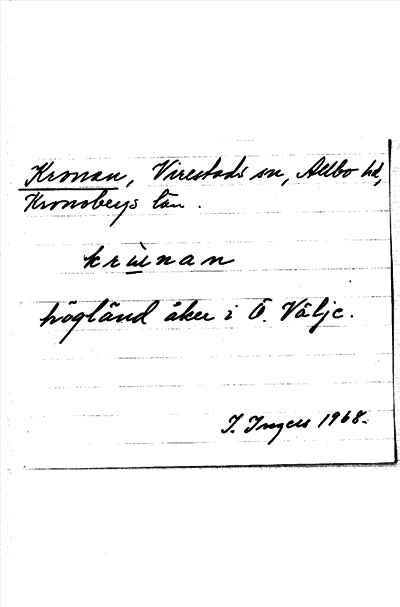 Kronan, Virestads sn, Allbo hd,
Kronobergs län.
krùnan
högländ åker i Ö. Välje.
I. Ingers 1968.